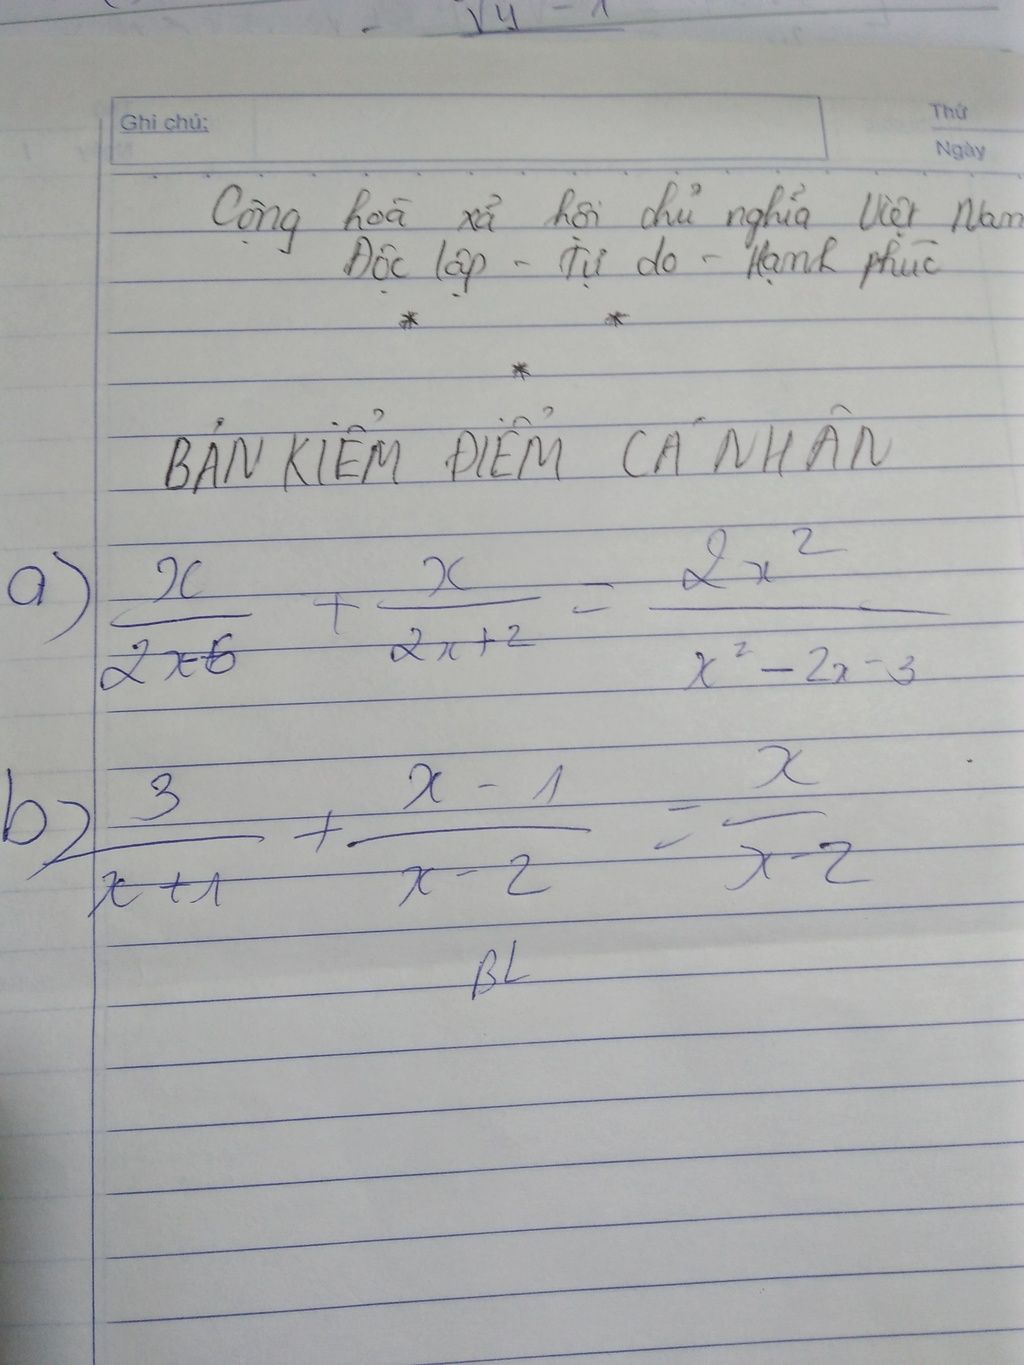 √y - 1
Ghi chú:
Thứ
Ngày
Cộng hoà xả hội chủ nghỉa Việt Nam
Độc lập - Tự do - Hạnh phúc
* *
*
BẢN KIỂM ĐIỂM CÁ NHÂN
a) x/(2x-6) + x/(2x+2) = 2x²/(x²-2x-3)
b) 3/(x+1) + (x-1)/(x-2) = x/(x-2)
BL